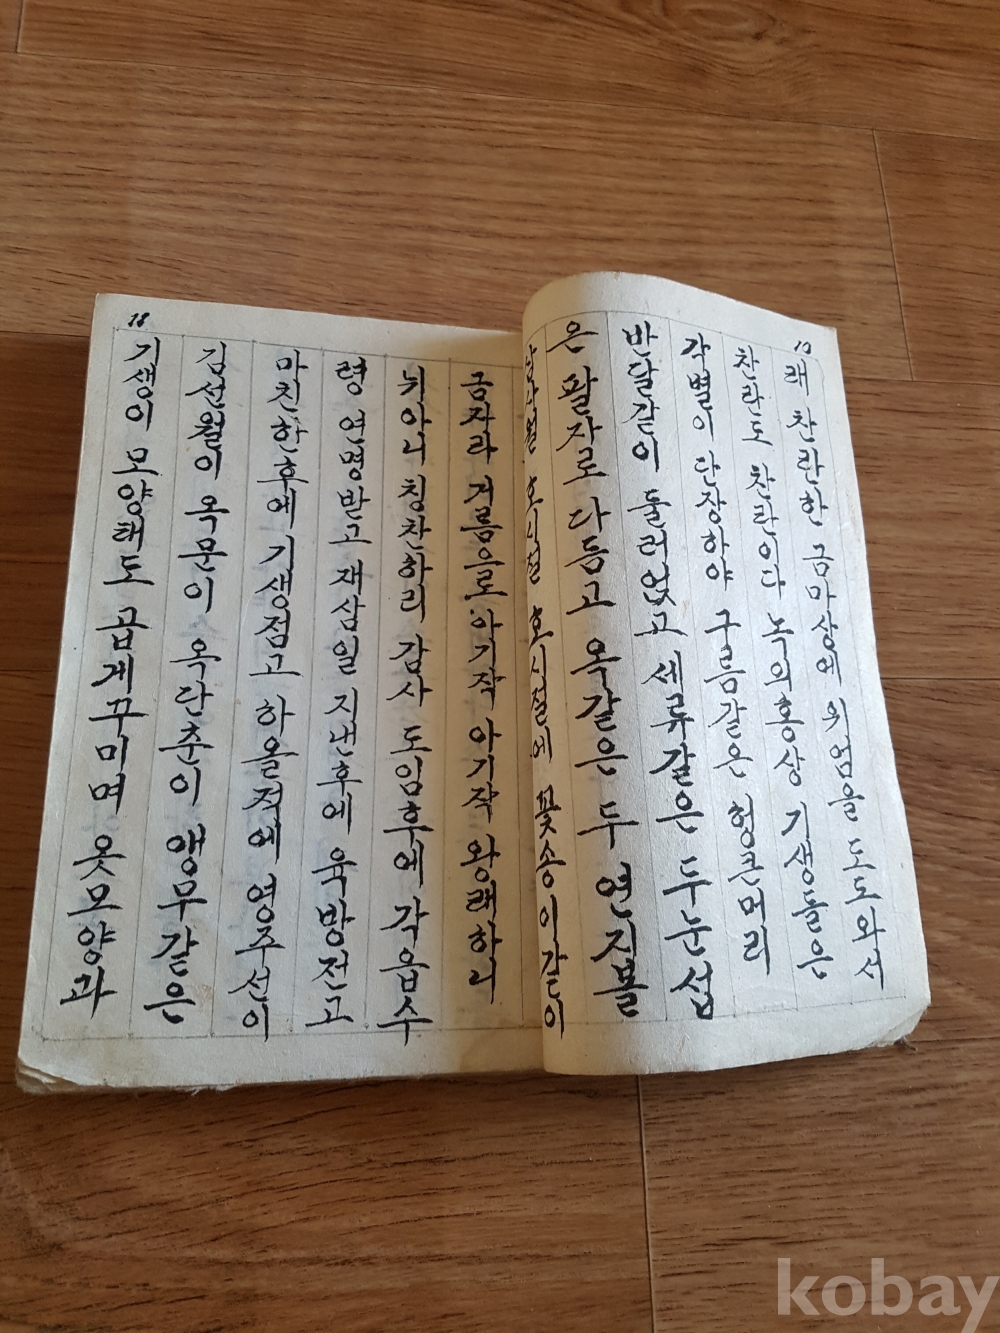 10
래 찬란한 금마상에 위엄을 도도와서
찬란도 찬란이다 녹의홍상 기생들은
각별이 단장하야 구름같은 헝큰머리
반달같이 둘러얹고 세류같은 두눈섭
은 팔자로 다듬고 옥같은 두 연지볼
호시절 호시절에 꽃송이같이
금자라 거름으로 아기작 아기작 왕래하니
뉘아니 칭찬하리 감사 도임후에 각읍수
령 연명받고 재삼일 지낸후에 육방전고
마친한후에 기생점고 하올적에 영주선이
김선월이 옥문이 옥단춘이 앵무같은
기생이 모양태도 곱게꾸미며 옷모양과
18
kobay